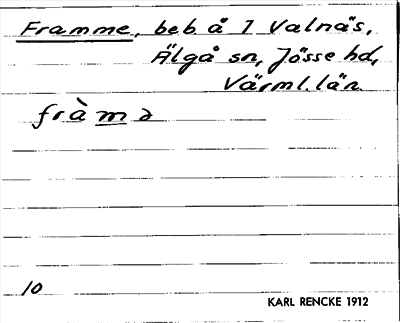 Framme, beb å 1 Valnäs,
Älgå sn, Jösse hd,
Värml. län.
fràmə
10
KARL RENCKE 1912